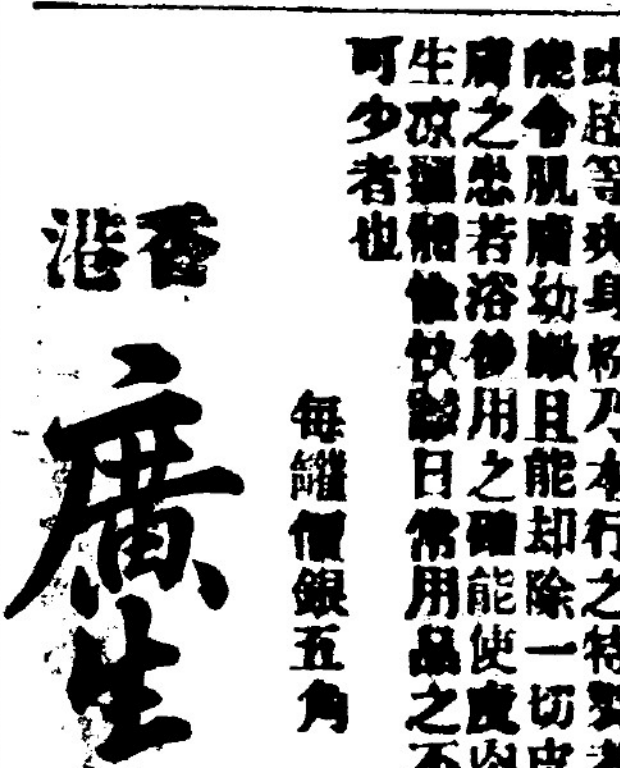 此超等爽身粉乃本行之特製者
能令肌膚幼嫩且能却除一切皮
膚之患若浴後用之確能使皮肉
生凉遍體愉快誠日常用品之不
可少者也
每罐價銀五角
香港
廣生